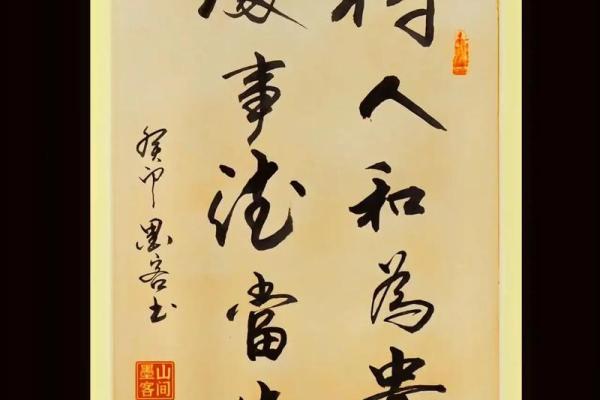 待人和為貴
處事德當先
癸卯墨客书
山间
墨客